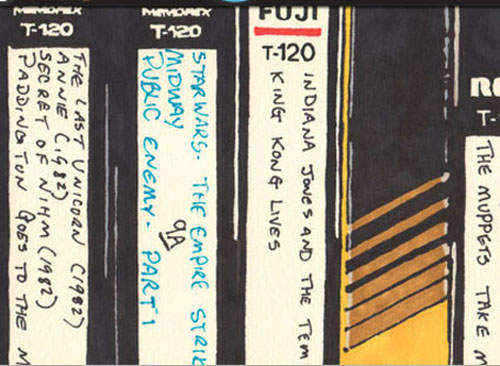 MEMOREX
T-120
THE LAST UNICORN (1982)
ANNIE (1982)
SECRET OF NIHM (1982)
PADDINGTON GOES TO THE M
MEMOREX
T-120
STAR WARS- THE EMPIRE STRIK
MIDWAY
PUBLIC ENEMY- PART 1
9A
FUJI
T-120
INDIANA JONES AND THE TEM
KING KONG LIVES
T-
THE MUPPETS TAKE M